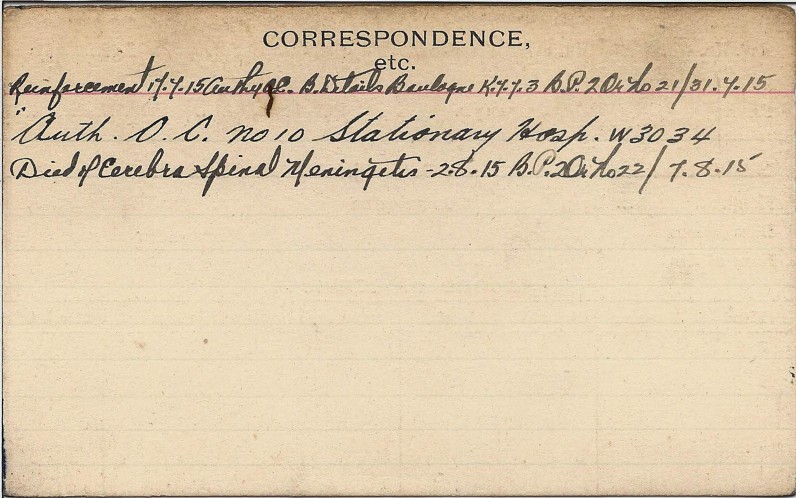 CORRESPONDENCE,
etc.
Reinforcement 17.7.15 Authy OC. B. Details Boulogne K.7.7.3 B.P. 2 Or No 21/31.7.15
"Auth. O. C. No 10 Stationary Hosp. W3034
Died of Cerebra Spinal Meningetis - 2.8.15 B.P. 2 Or No 22/ 7.8.15